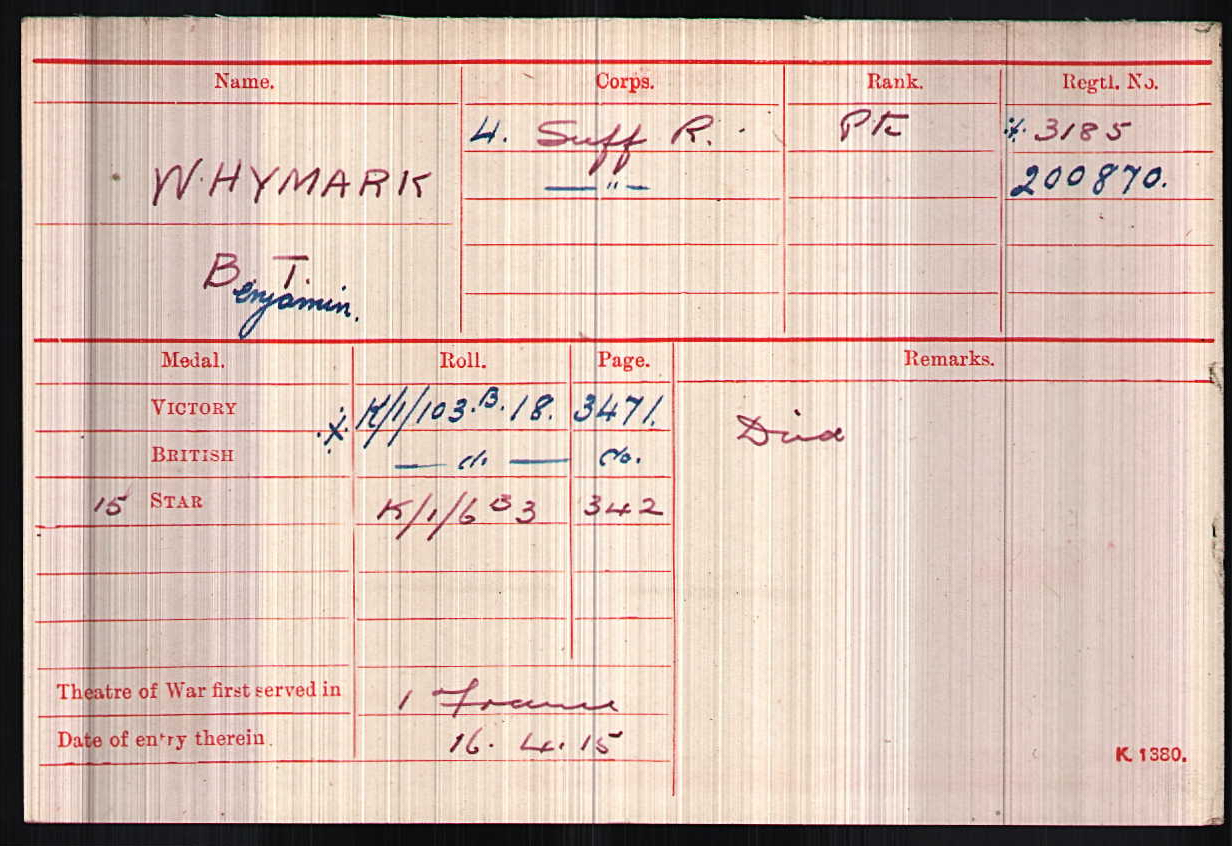 Name. Corps. Rank. Regtl. No.
4. Suff R. Pte 3185
WHYMARK — " — 200870.
B T.
enjamin.
Medal. Roll. Page. Remarks.
VICTORY K/1/103.B.18. 3471. Died
BRITISH — do — do.
15 STAR K/1/6 B 3 342
Theatre of War first served in 1 France
Date of entry therein 16. 4. 15
K. 1380.